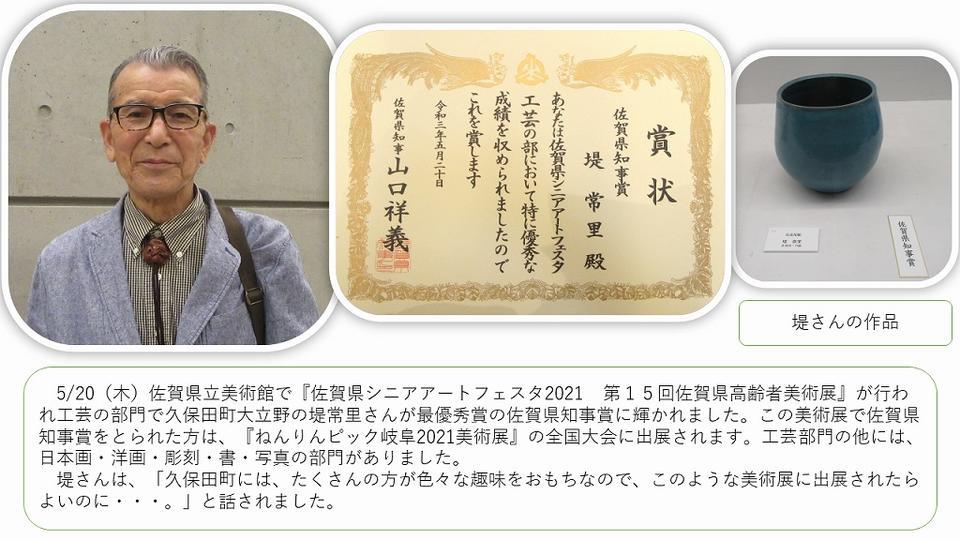 賞状
佐賀県知事賞
堤 常里 殿
あなたは佐賀県シニアアートフェスタ
工芸の部において特に優秀な
成績を収められましたので
これを賞します
令和三年五月二十日
佐賀県知事 山口祥義
佐賀県知事賞
堤さんの作品
5/20（木）佐賀県立美術館で『佐賀県シニアアートフェスタ2021　第１５回佐賀県高齢者美術展』が行わ
れ工芸の部門で久保田町大立野の堤常里さんが最優秀賞の佐賀県知事賞に輝かれました。この美術展で佐賀県
知事賞をとられた方は、『ねんりんピック岐阜2021美術展』の全国大会に出展されます。工芸部門の他には、
日本画・洋画・彫刻・書・写真の部門がありました。
堤さんは、「久保田町には、たくさんの方が色々な趣味をおもちなので、このような美術展に出展されたら
よいのに・・・。」と話されました。